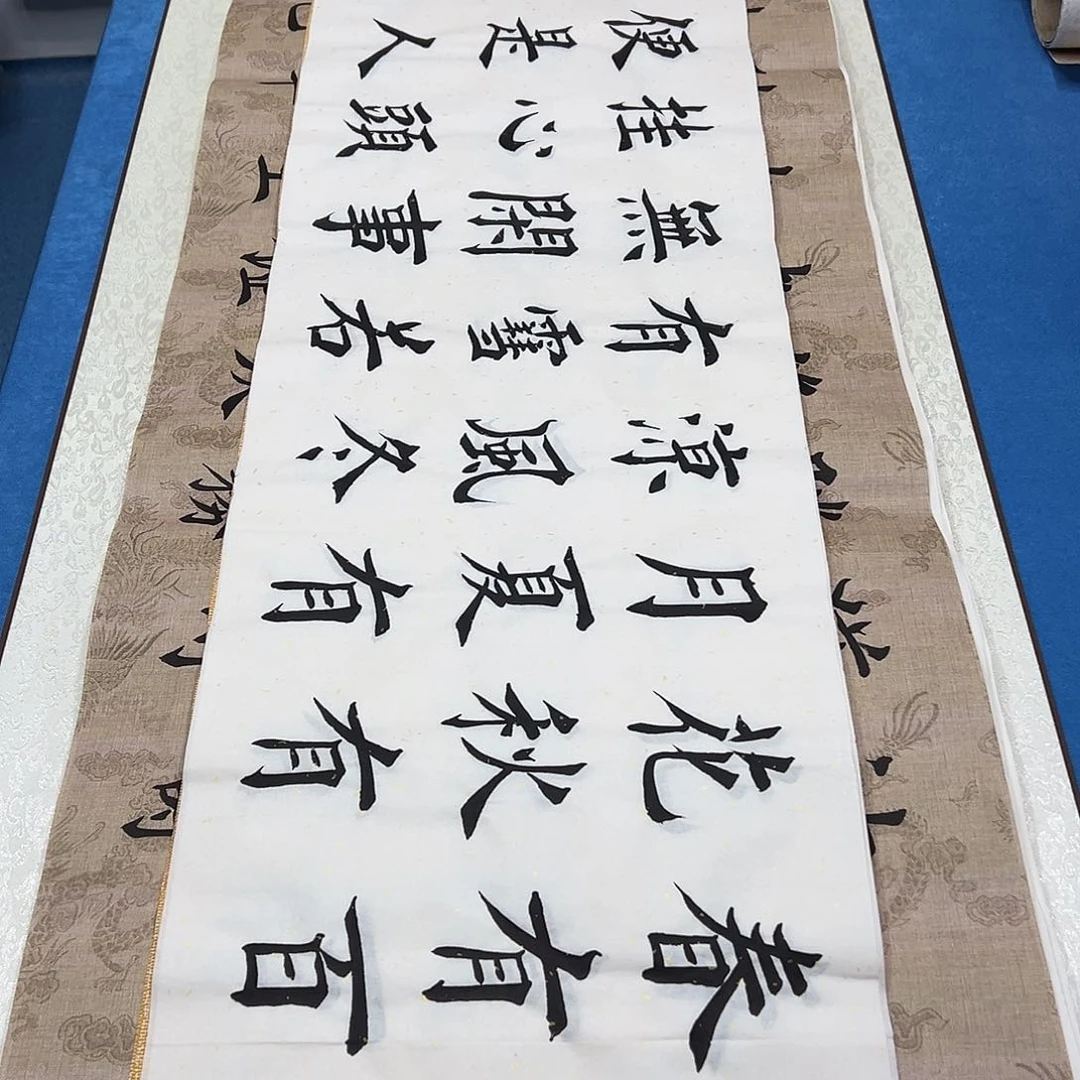 春有百
花秋有
月夏有
涼風冬
有雪若
無閑事
挂心頭
便是人